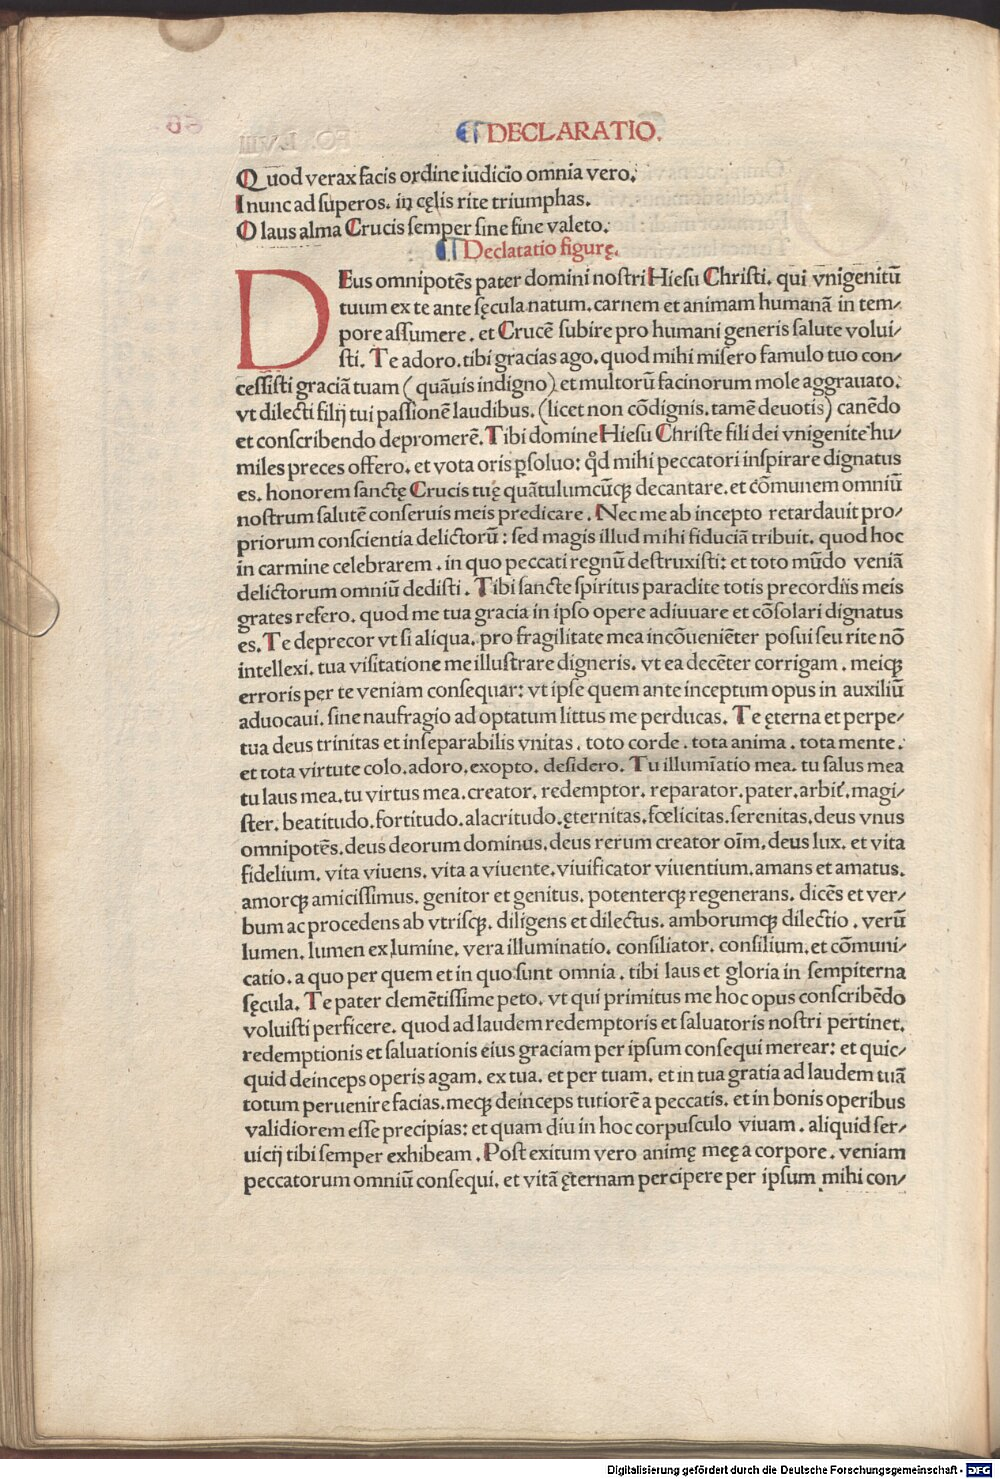 ¶ DECLARATIO.
Quod verax facis ordine iudicio omnia vero.
I nunc ad superos. in cęlis rite triumphas.
O laus alma Crucis semper sine fine valeto.
¶ Declatatio figurę.
DEus omnipotēs pater domini nostri Hiesu Christi. qui vnigenitū
tuum ex te ante sęcula natum. carnem et animam humanā in tem⸗
pore assumere. et Crucē subire pro humani generis salute volui⸗
sti. Te adoro. tibi gracias ago. quod mihi misero famulo tuo con⸗
cessisti graciā tuam (quāuis indigno) et multorū facinorum mole aggrauato.
vt dilecti filij tui passionē laudibus. (licet non cōdignis. tamē deuotis) canēdo
et conscribendo depromerē. Tibi domine Hiesu Christe fili dei vnigenite hu⸗
miles preces offero. et vota oris ꝑsoluo: qd̄ mihi peccatori inspirare dignatus
es. honorem sanctę Crucis tuę quātulumcūqꝫ decantare. et cōmunem omniū
nostrum salutē conseruis meis predicare. Nec me ab incepto retardauit pro⸗
priorum conscientia delictorū: sed magis illud mihi fiduciā tribuit. quod hoc
in carmine celebrarem. in quo peccati regnū destruxisti: et toto mūdo veniā
delictorum omniū dedisti. Tibi sancte spiritus paraclite totis precordiis meis
grates refero. quod me tua gracia in ipso opere adiuuare et cōsolari dignatus
es. Te deprecor vt si aliqua. pro fragilitate mea incōueniēter posui seu rite nō
intellexi. tua visitatione me illustrare digneris. vt ea decēter corrigam. meiqꝫ
erroris per te veniam consequar: vt ipse quem ante inceptum opus in auxiliū
aduocaui. sine naufragio ad optatum littus me perducas. Te ęterna et perpe⸗
tua deus trinitas et inseparabilis vnitas. toto corde. tota anima. tota mente.
et tota virtute colo. adoro. exopto. desidero. Tu illumīatio mea. tu salus mea
tu laus mea. tu virtus mea. creator. redemptor. reparator. pater. arbit̄. magi⸗
ster. beatitudo. fortitudo. alacritudo. ęternitas. fœlicitas. serenitas. deus vnus
omnipotēs. deus deorum dominus. deus rerum creator oīm. deus lux. et vita
fidelium. vita viuens. vita a viuente. viuificator viuentium. amans et amatus.
amorqꝫ amicissimus. genitor et genitus. potenterqꝫ regenerans. dicēs et ver⸗
bum ac procedens ab vtrisqꝫ. diligens et dilectus. amborumqꝫ dilectio. verū
lumen. lumen ex lumine. vera illuminatio. consiliator. consilium. et cōmuni⸗
catio. a quo per quem et in quo sunt omnia. tibi laus et gloria in sempiterna
sęcula. Te pater clemētissime peto. vt qui primitus me hoc opus conscribēdo
voluisti perficere. quod ad laudem redemptoris et saluatoris nostri pertinet.
redemptionis et saluationis eius graciam per ipsum consequi merear: et quic⸗
quid deinceps operis agam. ex tua. et per tuam. et in tua gratia ad laudem tuā
totum peruenire facias. meqꝫ deinceps tutiorē a peccatis. et in bonis operibus
validiorem esse precipias: et quam diu in hoc corpusculo viuam. aliquid ser⸗
uicij tibi semper exhibeam. Post exitum vero animę meę a corpore. veniam
peccatorum omniū consequi. et vitā ęternam percipere per ipsum mihi con⸗
Digitalisierung gefördert durch die Deutsche Forschungsgemeinschaft - DFG